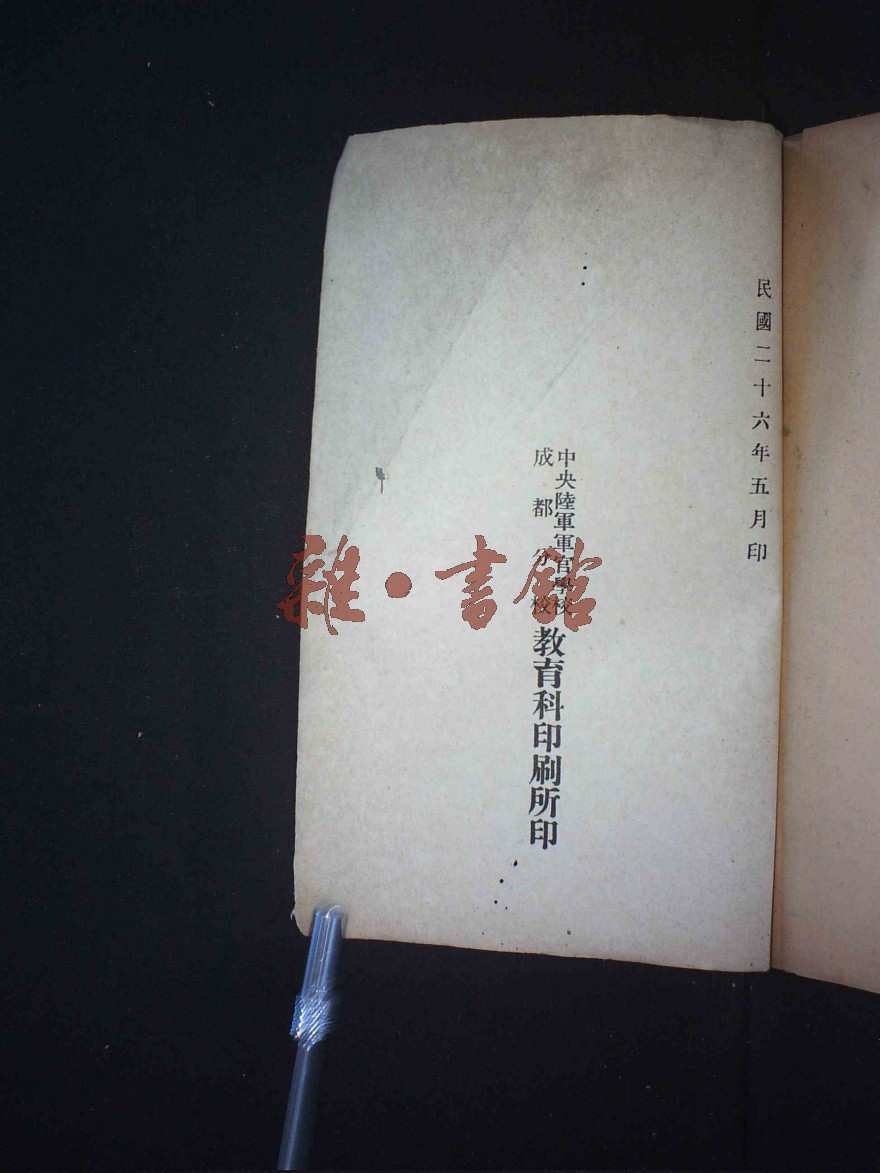 民國二十六年五月印
中央陸軍軍官學校
成都分校
教育科印刷所印
雜·書館